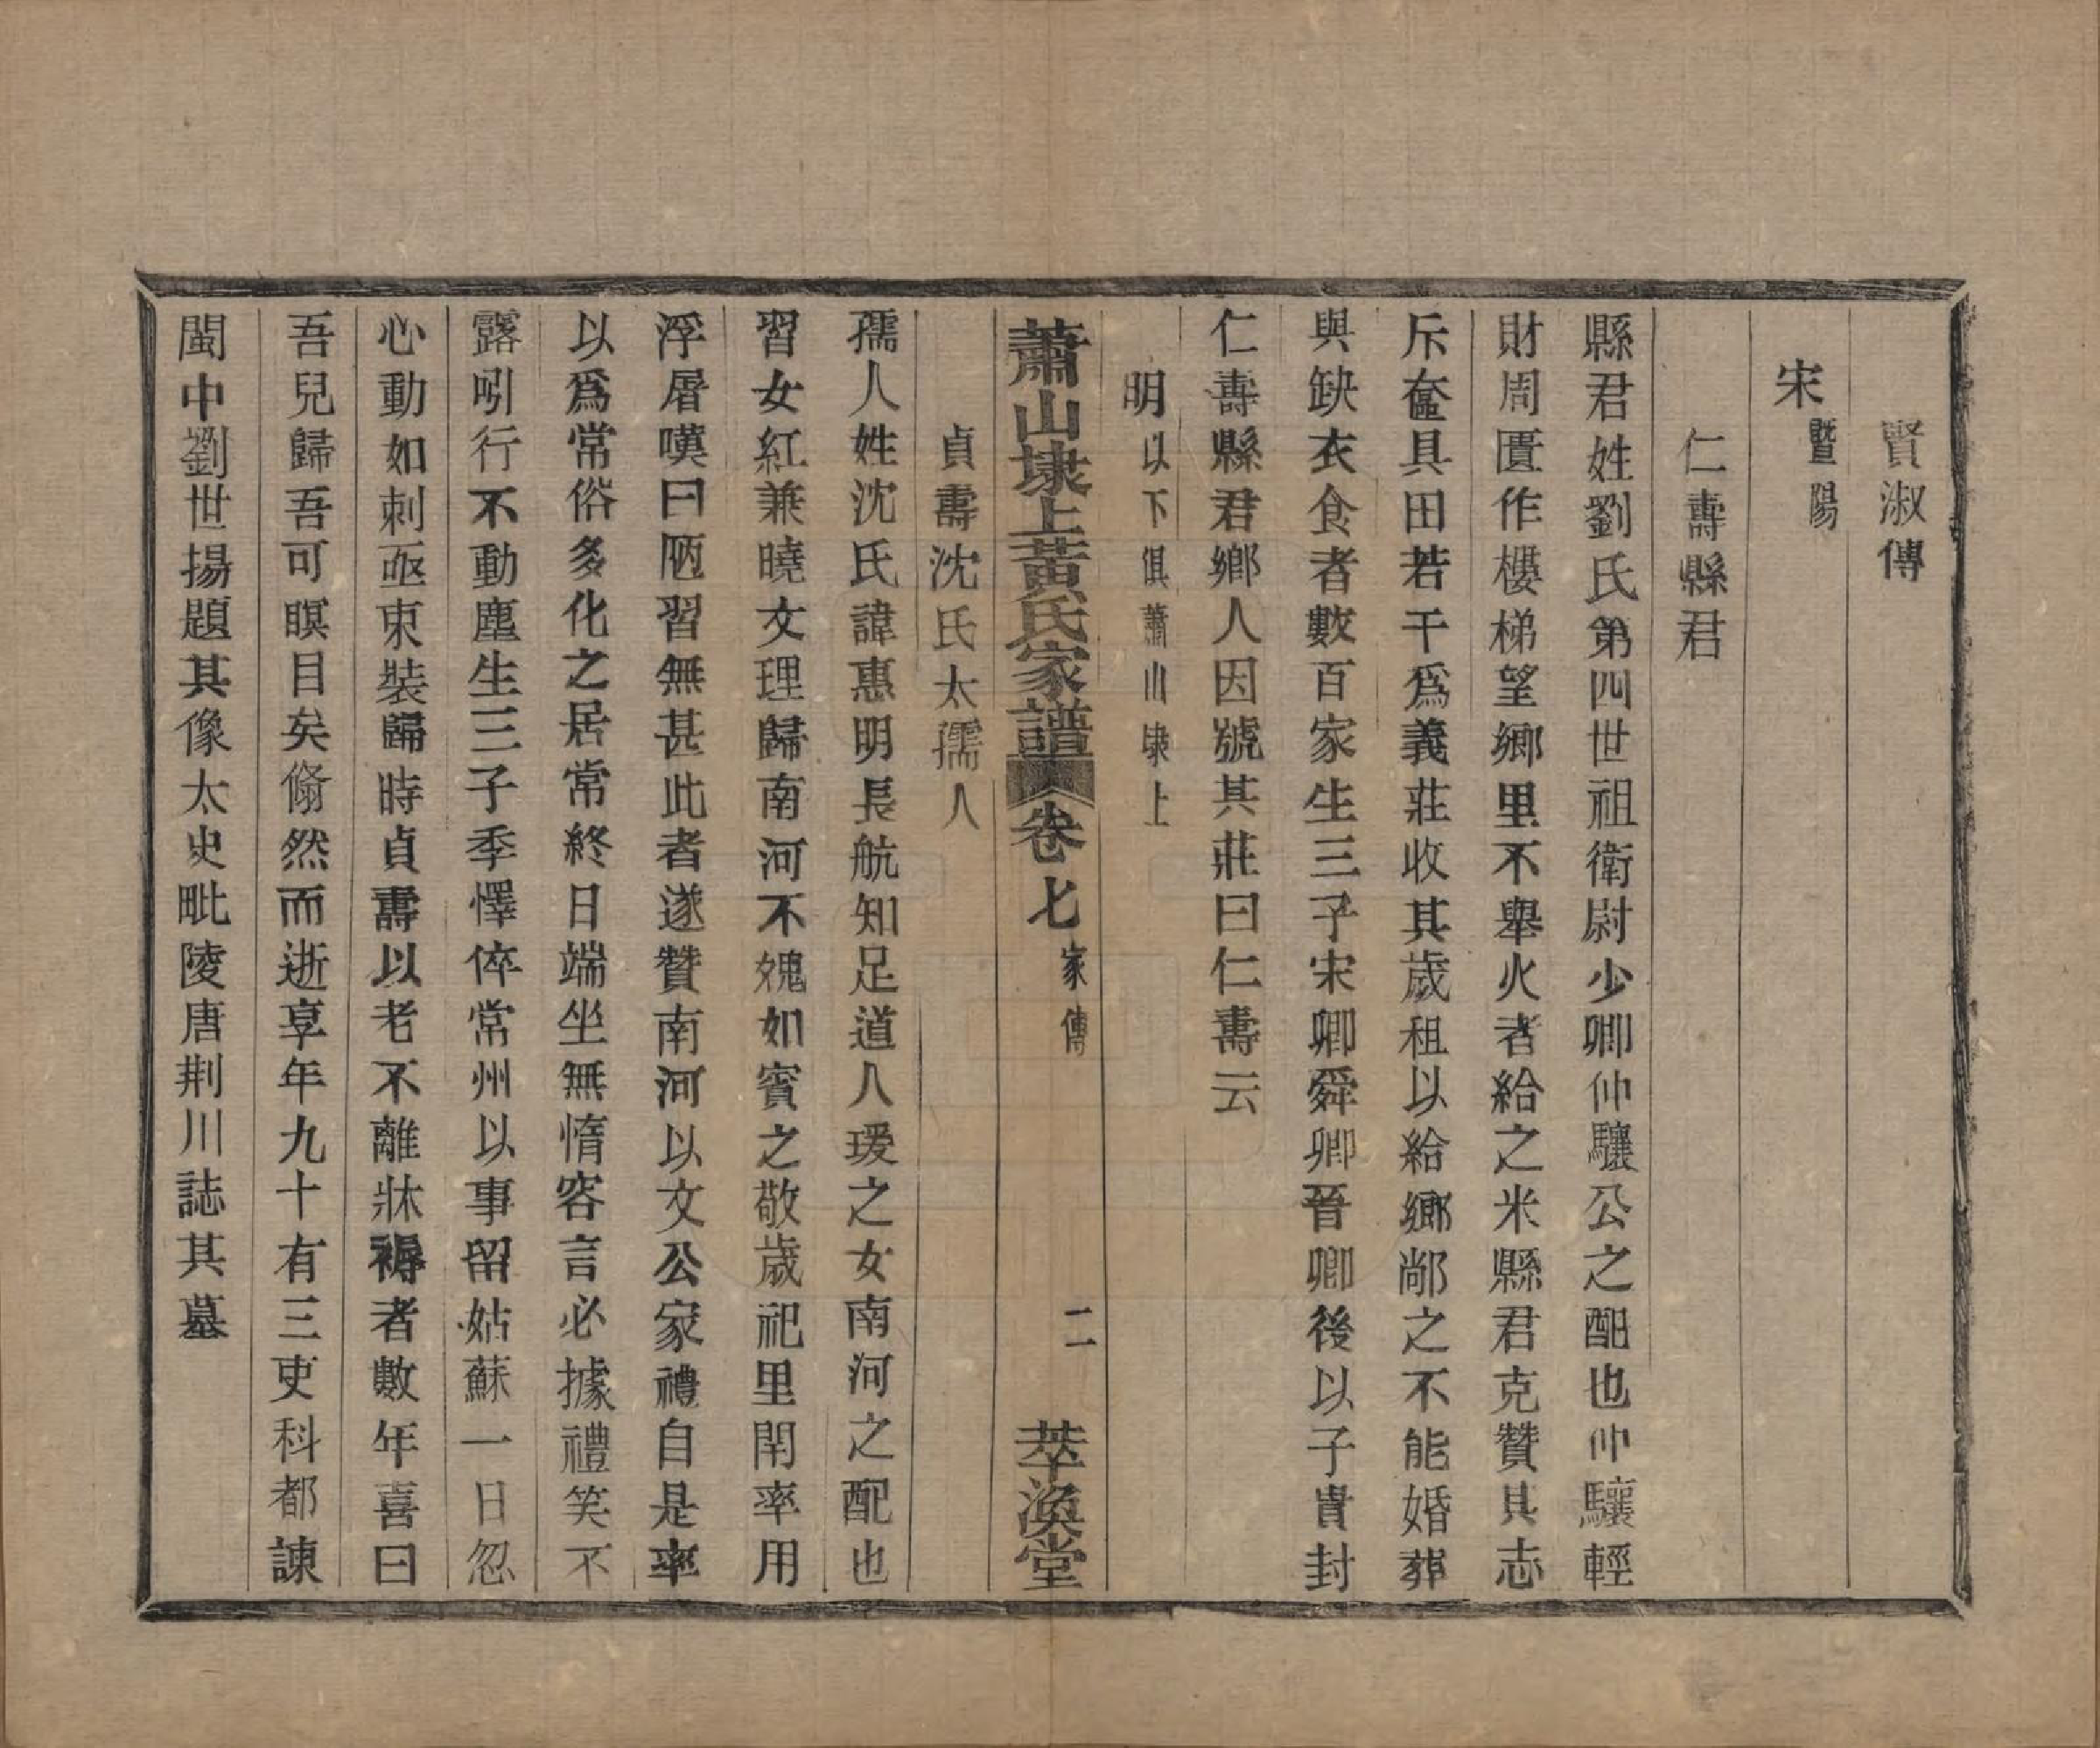 賢淑傳
宋暨陽
仁壽縣君
縣君姓劉氏第四世祖衛尉少卿仲驤公之配也仲驤輕
財周匱作樓梯望鄉里不舉火者給之米縣君克贊其志
斥奩具田若干爲義莊收其歲租以給鄉鄰之不能婚葬
與缺衣食者數百家生三子宋卿舜卿晉卿後以子貴封
仁壽縣君鄉人因號其莊曰仁壽云
明以下俱蕭山埭上
蕭山埭上黃氏家譜卷七家傳 二 萃渙堂
貞壽沈氏太孺人
孺人姓沈氏諱惠明長航知足道人瑗之女南河之配也
習女紅兼曉文理歸南河不媿如賓之敬歲祀里閈率用
浮屠嘆曰陋習無甚此者遂贊南河以文公家禮自是率
以爲常俗多化之居常終日端坐無惰容言必據禮笑不
露哂行不動塵生三子季懌倅常州以事留姑蘇一日忽
心動如刺亟束裝歸時貞壽以老不離牀褥者數年喜曰
吾兒歸吾可瞑目矣翛然而逝享年九十有三吏科都諫
閩中劉世揚題其像太史毗陵唐荆川誌其墓